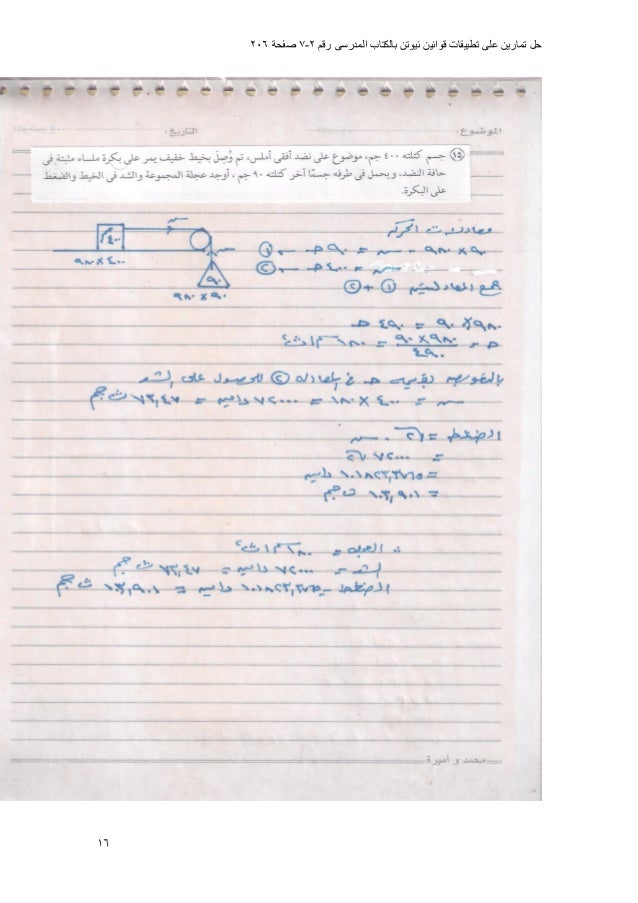 حل تمارين على تطبيقات قوانين نيوتن بالكتاب المدرسى رقم ٢-٧ صفحة ٢٠٦
الموضوع: التاريخ:
١٥ جسم كتلته ٤٠٠ جم، موضوع على نضد أفقى أملس، تم وُصِلَ بخيط خفيف يمر على بكرة ملساء مثبتة فى
حافة النضد. ويحمل فى طرفه جسمًا آخر كتلته ٩٠ جم ، أوجد عجلة المجموعة والشد فى الخيط والضغط
على البكرة.
معادلات الحركة
٤٠٠ ش ش
٩٨٠×٩٠ - ش = ٩٠ حـ ← ①
٩٨٠×٤٠٠
ش = ٤٠٠ حـ ← ②
٩٠
٩٨٠×٩٠
بجمع المعادلتين ① + ②
٩٨٠×٩٠ = ٤٩٠ حـ
حـ = ٩٨٠×٩٠ / ٤٩٠ = ١٨٠ سم/ث²
بالتعويض بقيمة حـ فى المعادلة ② للحصول على الشد
ش = ٤٠٠ × ١٨٠ = ٧٢٠٠٠ داين = ٧٣,٤٧ ث جم
الضغط = √٢ . ش
= ٧٢٠٠٠ √٢
= ١٠١٨٢٣,٣٧٦٥ داين
= ١٠٣,٩٠١ ث جم
∴ العجلة = ١٨٠ سم/ث²
الشد = ٧٢٠٠٠ داين = ٧٣,٤٧ ث جم
الضغط = ١٠١٨٢٣,٣٧٦٥ داين = ١٠٣,٩٠١ ث جم
محمد و أميرة
١٦